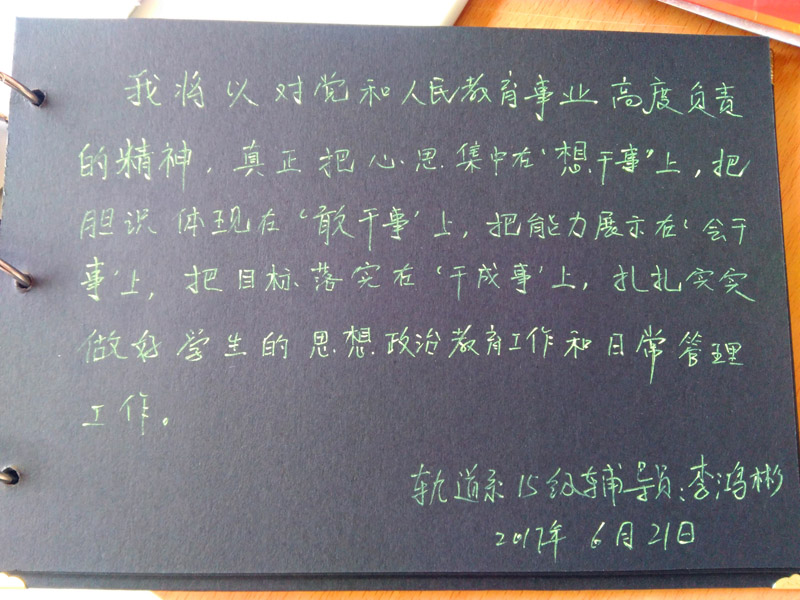 我将以对党和人民教育事业高度负责
的精神，真正把心思集中在“想干事”上，把
胆识体现在‘敢干事’上，把能力展示在‘会干
事’上，把目标落实在‘干成事’上，扎扎实实
做好学生的思想政治教育工作和日常管理
工作。
轨道系15级辅导员：李鸿彬
2017年6月21日